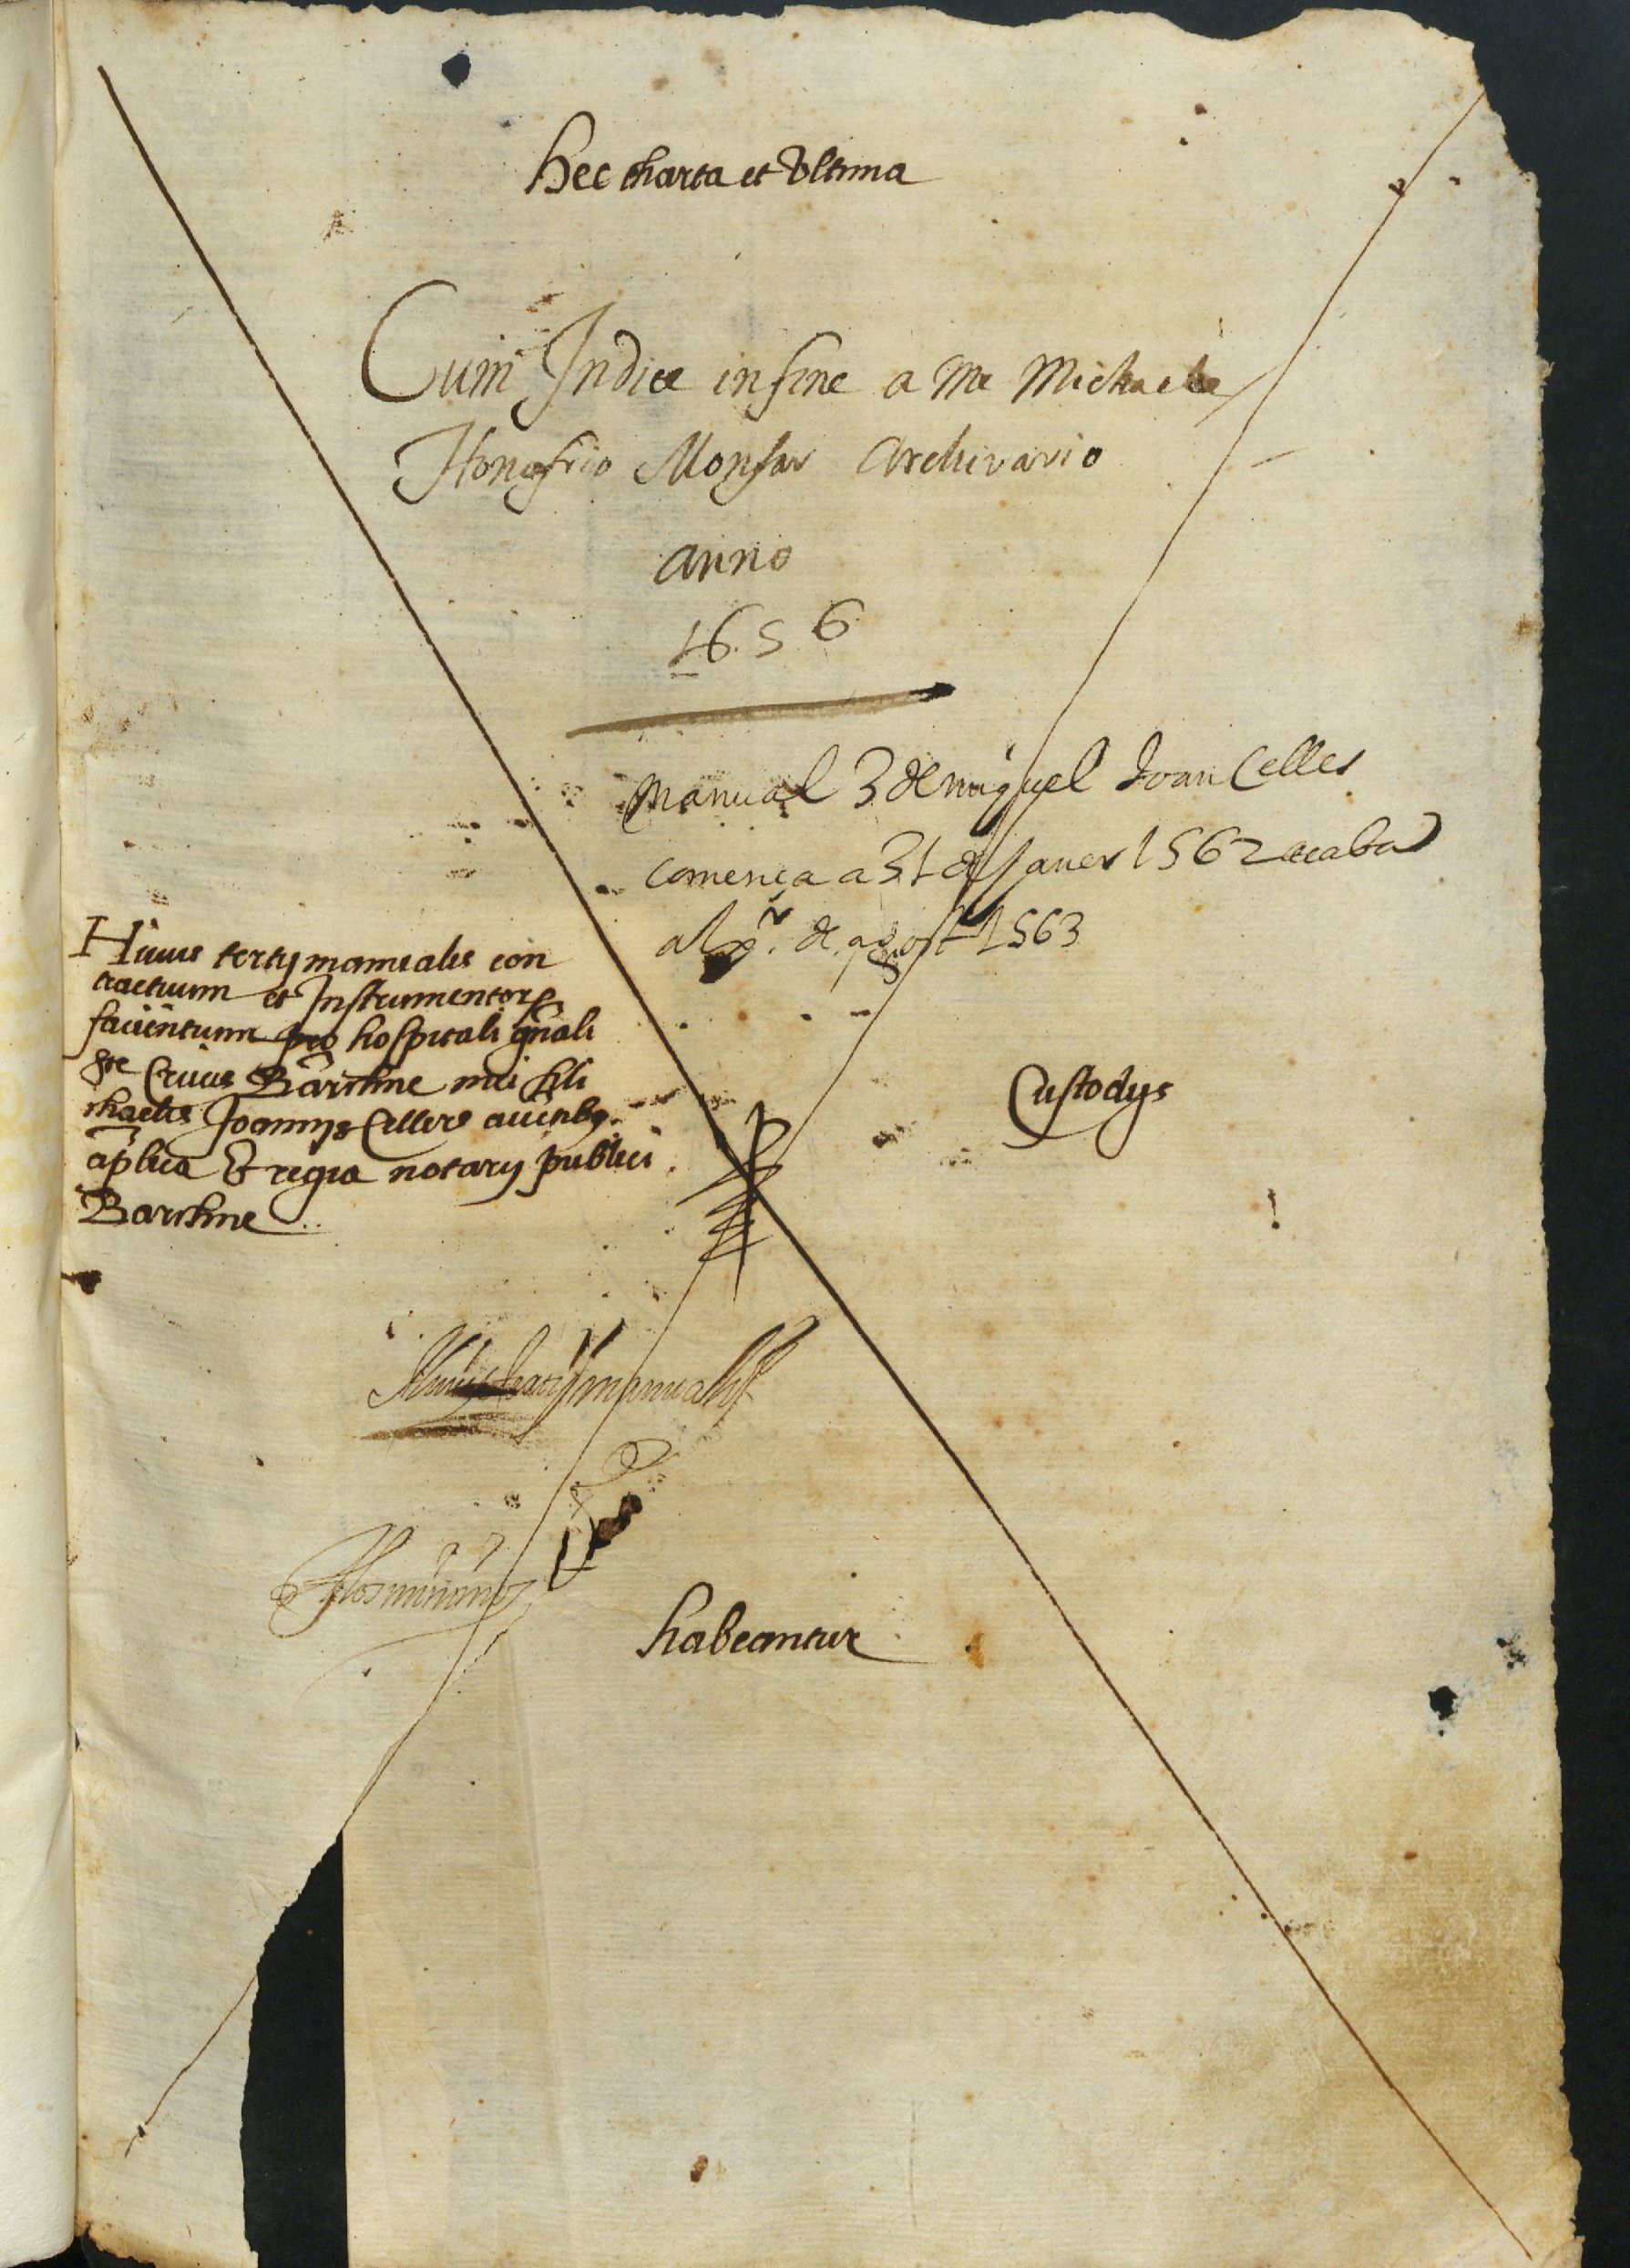 hec charta et Vltima
Cum Indice in fine a me Michaele
Honofrio Monfar Archivario
anno
1656
Manual 3 de miguel Joan Celles
comença a 31 de Janer 1562 acaba
al pr. de agost 1563
Huius tertij manualis con
tractuum et Instrumentor
facientium pro hospitali gñali
ste Crucis Barchne mei Mi
chaelis Joannis Cellers auctib9
aplica & regia notarij publici
Barchne
Custodys
manualis
habeantur